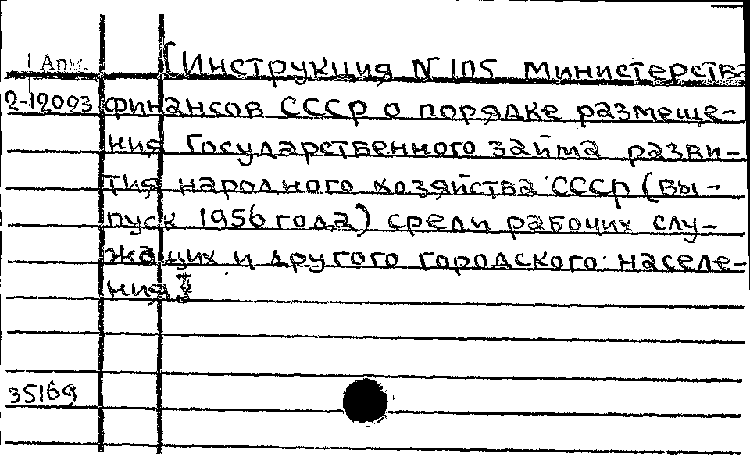 1 Арм. [Инструкция N 105 Министерства
2-12093 финансов СССР о порядке размеще-
ния Государственного займа разви-
тия народного хозяйства СССР (вы-
пуск 1956 года) среди рабочих слу-
жащих и другого городского населе-
ния]
35169